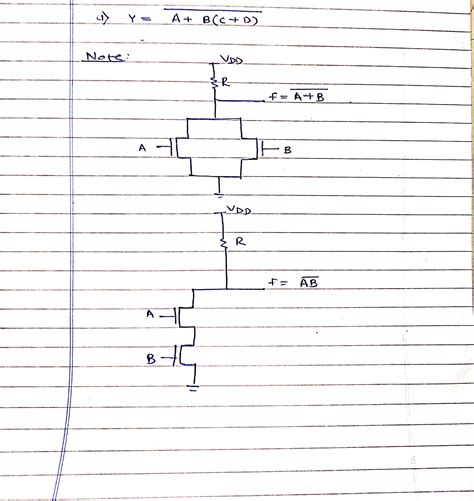 1) Y = \overline{A + B(C+D)}
Note:
VDD
R
f = \overline{A+B}
A
B
VDD
R
f = \overline{AB}
A
B